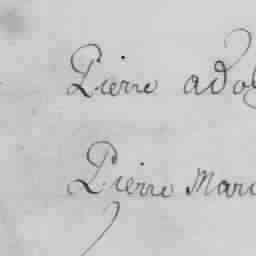 Pierre adol
Pierre Mari